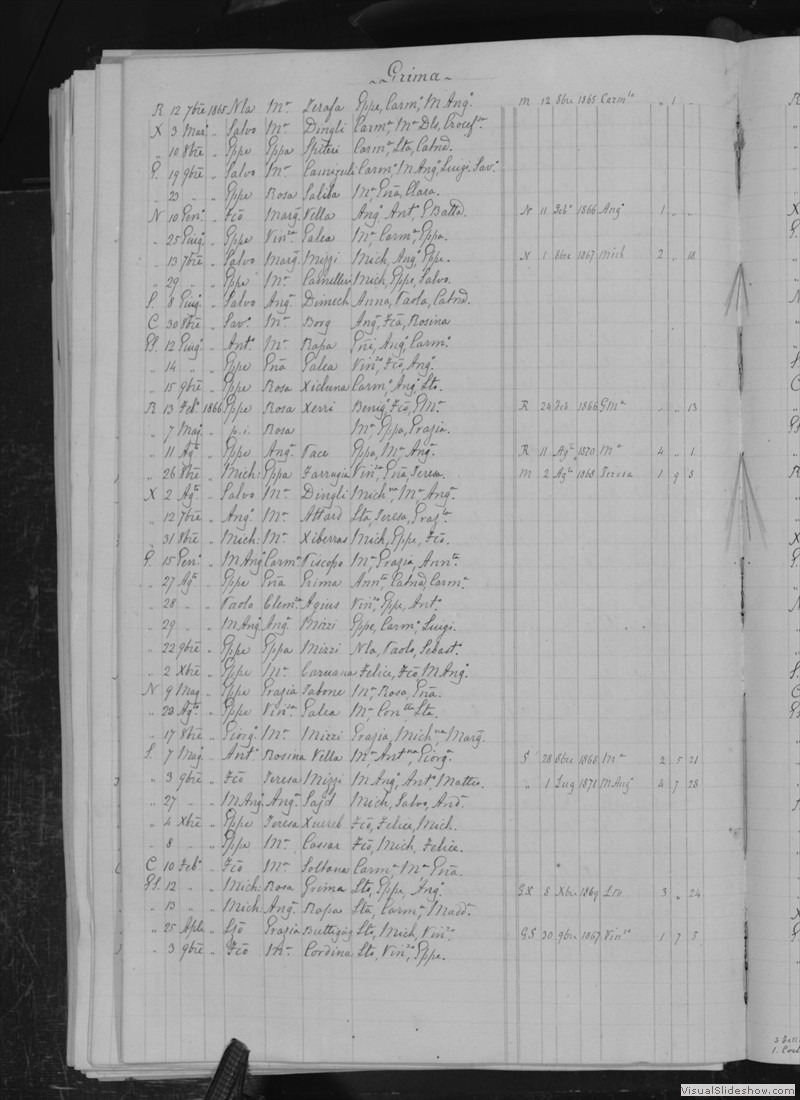 Grima
R 12 7bre 1865 Nla Ma Zerafa Gppe, Carmo, M Ango. M 12 8bre 1865 Carmlo „ 1 „
X 3 Mar „ Salvo Ma Dingli Carmo, Ma Dls,
„ 10 8bre „ Gppe Gppa Spiteri Carma, Sta, Catnd.
G. 19 9bre „ Salvo Ma Carmo, M Ang, Luigi, Savo.
„ 23 „ „ Gppe Rosa Saliba Ma, Gña, Clara.
N 10 Geno. „ Fco Marga Vella Ango, Anto, GBatta. N 11 Feb. 1866 Ango 1 „ „
„ 25 Giugo „ Gppe Vinza Galea Ma, Carma, Gppa.
„ 13 7bre „ Salvo Marga Mizzi Mich, Ango, Gppe. N 1 8bre 1867 Mich 2 „ 18
„ 29 „ „ Gppe Ma Camilleri Mich, Gppe, Salvo.
S. 8 Giugo „ Salvo Anga Dimech Anna, Paola, Catnd.
C 30 8bre „ Savo. Ma Borg Ango, Fco, Rosina
GS. 12 Giugo „ Anto. Ma Rapa Gñi, Ango, Carmo.
„ 14 „ „ Gppe Gña Galea Vinzo, Fco, Ango.
„ 15 9bre „ Gppe Rosa Xicluna Carmo, Ango, Sto.
R 13 Febo 1866 Gppe Rosa Xerri Benigo, Fco, GMa. R 24 Feb 1866 GMa „ „ 13
„ 7 Mag „ p.i. Rosa Ma, Gppa, Grazia.
„ 11 Ago „ Gppe Anga Pace Gppa, Ma, Anga. R 11 Ago 1870 Ma 4 „ 1
„ 26 8bre „ Mich: Gppa Farrugia Vinza, Gña, Teresa. M 2 Ago 1868 Teresa 1 9 8
X 2 Ago „ Salvo Ma Dingli Michna, Ma, Anga.
„ 12 7bre „ Ango Ma Attard Sta, Teresa,
„ 31 8bre „ Mich: Ma Xiberras Mich, Gppe, Fco.
G. 15 Geno. „ M Ango Carma Piscopo Ma, Grazia, Annta.
„ 27 Ago „ Gppe Gña Grima Annta, Catnd, Carma
„ 28 „ „ Paolo Clemza Agius Vinzo, Gppe, Anto.
„ 29 „ „ M Ango Anga Mizzi Gppe, Carmo, Luigi.
„ 22 9bre „ Gppe Gppa Mizzi Nla, Paolo, Sebasto.
„ 2 Xbre „ Gppe Ma Caruana Felice, Fco, M Ango.
N 9 Mag „ Gppe Grazia Tabone Ma, Rosa, Gña.
„ 23 Ago „ Gppe Vinza Galea Ma, Conta, Sta.
„ 17 8bre „ Giorgo Ma Mizzi Grazia, Michna, Marga.
S. 7 Mag „ Anto. Rosina Vella Ma, Antna, Giorga S 28 8bre 1868 Ma 2 5 21
„ 3 9bre „ Fco Teresa Mizzi M Ango, Anto, Matteo. „ 1 Lug 1871 M Ango 4 7 28
„ 27 „ „ M Ango Anga Sajd Mich, Salvo, And.
„ 4 Xbre „ Gppe Teresa Xuereb Fco, Felice, Mich.
„ 8 „ „ Gppe Ma Cassar Fco, Mich, Felice.
C 10 Febo „ Fco Ma Soltana Carma, Ma, Gña.
GS. 12 „ „ Mich: Rosa Grima Sto, Gppe, Ango. GS 8 Xbre 1869 Sto 3 „ 24
„ 13 „ „ Mich: Anga Rapa Sta, Carma, Madda.
„ 25 Aple „ Gio Grazia Buttigieg Sto, Mich, Vinzo. GS 30 9bre 1867 Vinzo 1 7 5
„ 3 9bre „ Fco Ma Cordina Sto, Vinzo, Gppe.
VisualSlideshow.com